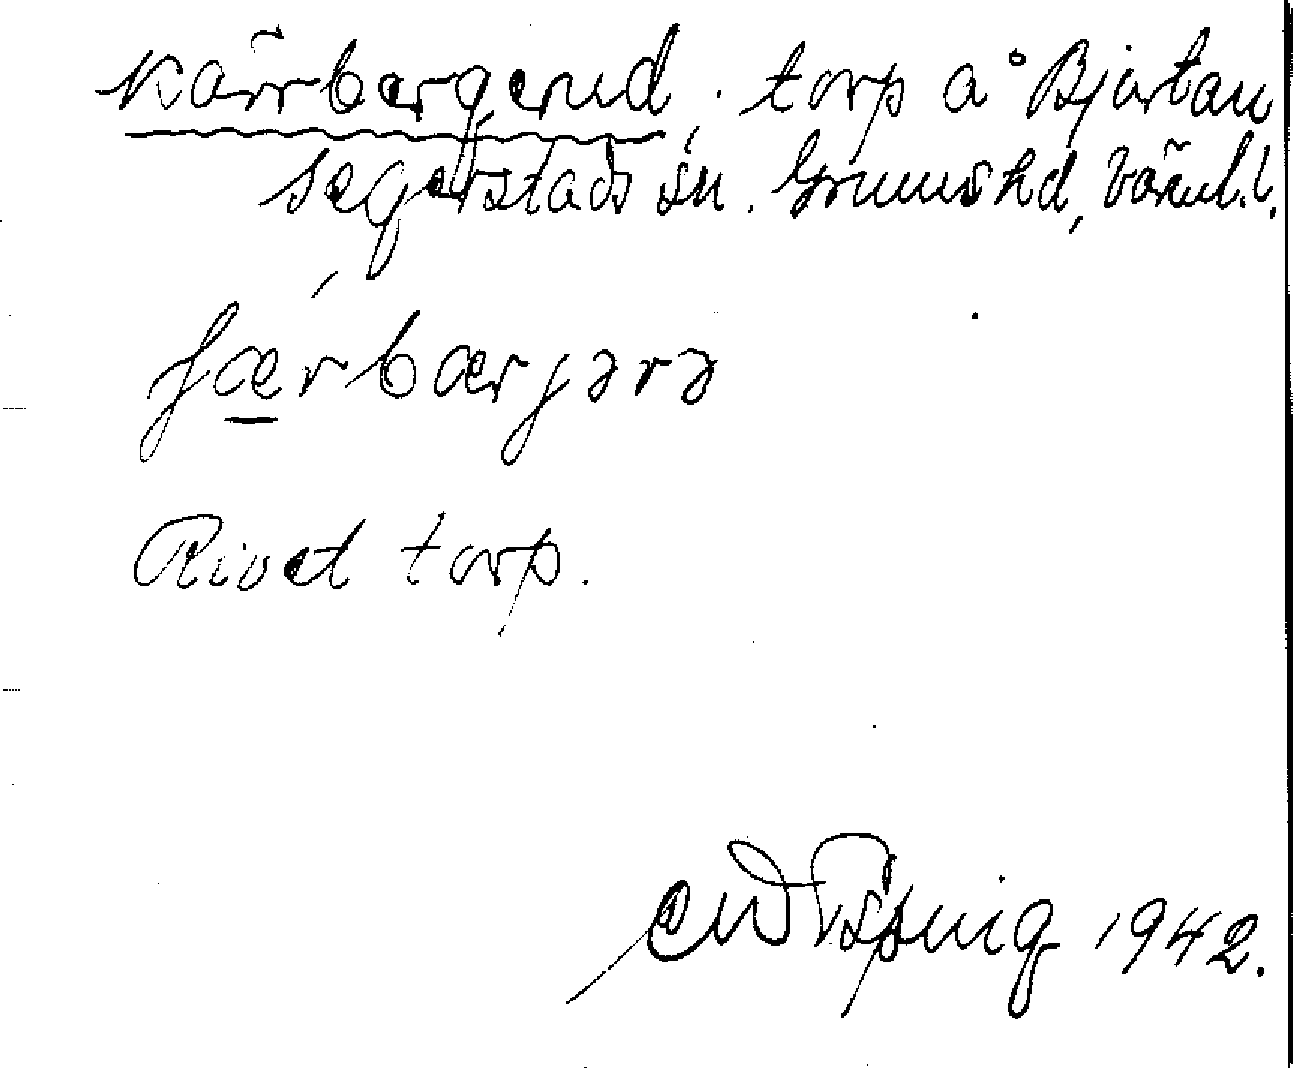 Kärrbergerud. torp å Bjurtan
Segerstads sn. Grums hd, Värml. l.
færbærjərə
Rivet torp.
1942.